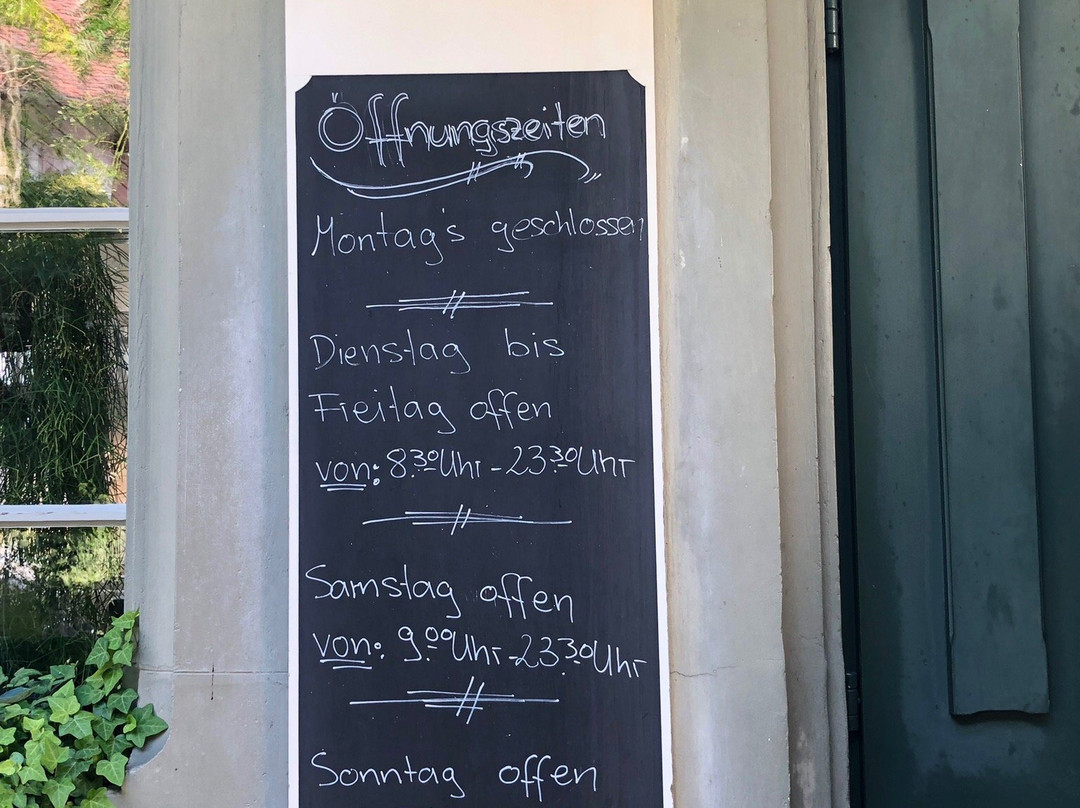 Öffnungszeiten
Montag's geschlossen
Dienstag bis
Freitag offen
von: 8.30 Uhr - 23.30 Uhr
Samstag offen
von: 9.00 Uhr - 23.30 Uhr
Sonntag offen